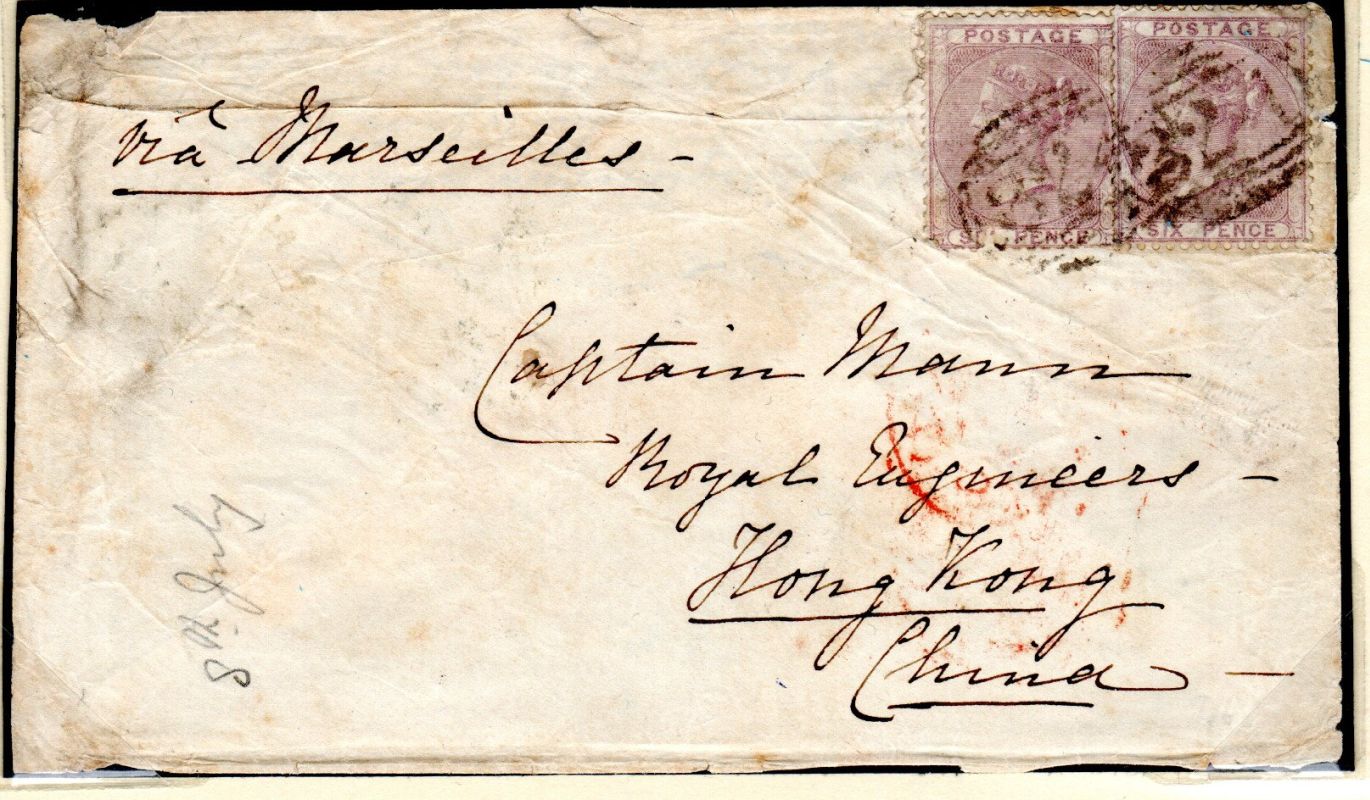 POSTAGE
POSTAGE
SIX PENCE
SIX PENCE
viâ Marseilles -
Captain Mann
Royal Engineers -
Hong Kong
China -
8th July